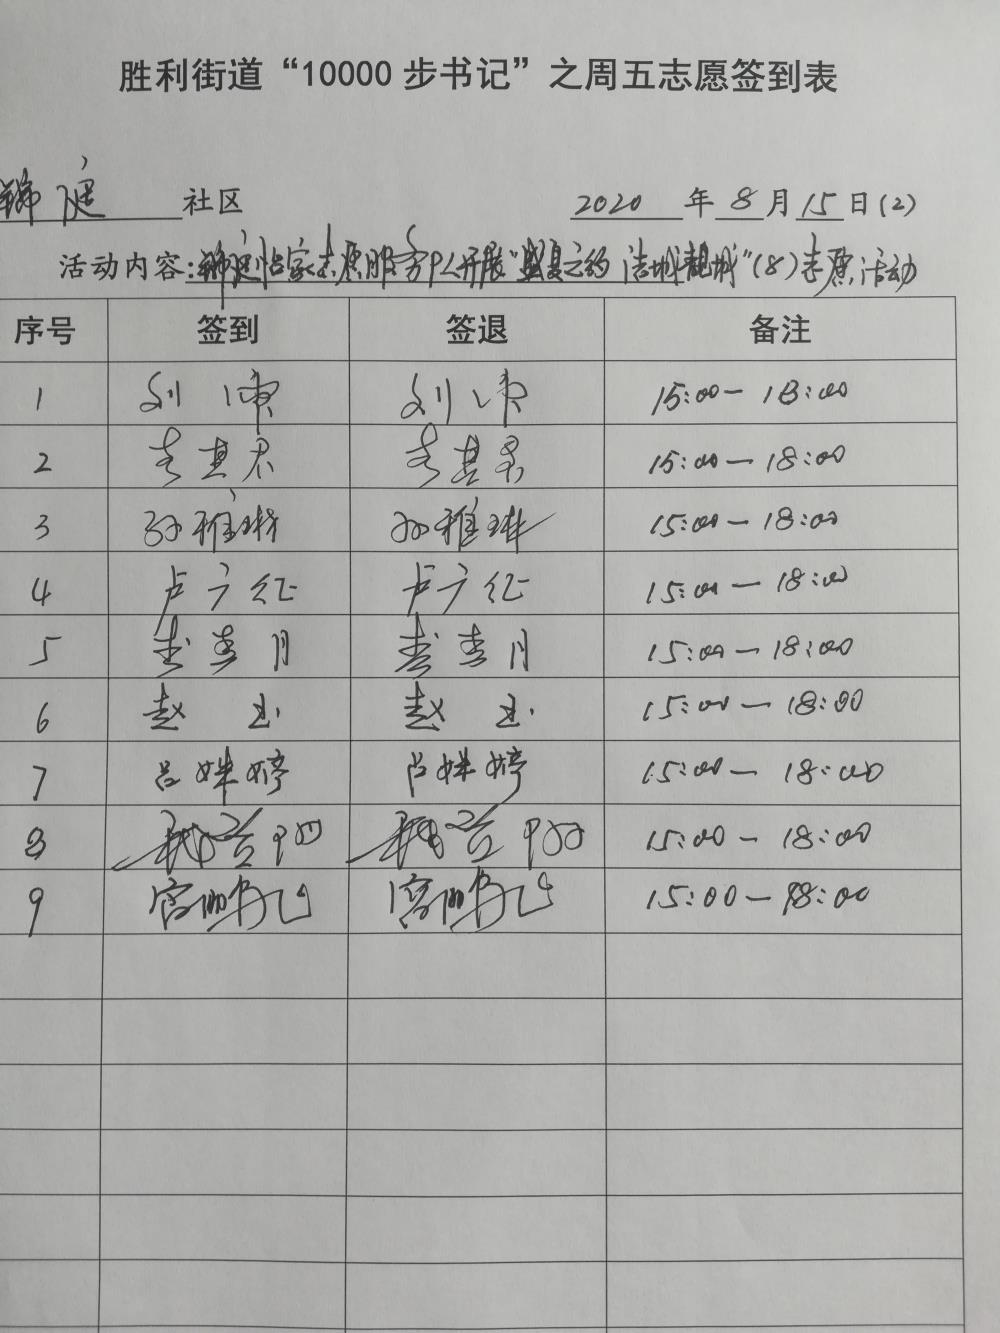 胜利街道“10000步书记”之周五志愿签到表
锦庭 社区 2020 年 8 月 15 日(2)
活动内容:锦庭怡家志愿服务队开展“盛夏之约 洁城靓城”(8)志愿活动
序号 签到 签退 备注
1 刘 刘 15:00-18:00
2 15:00-18:00
3 孙雅琳 孙雅琳 15:00-18:00
4 卢广征 卢广征 15:00-18:00
5 李春月 李春月 15:00-18:00
6 赵玉 赵玉 15:00-18:00
7 吕姝婷 吕姝婷 15:00-18:00
8 15:00-18:00
9 15:00-18:00